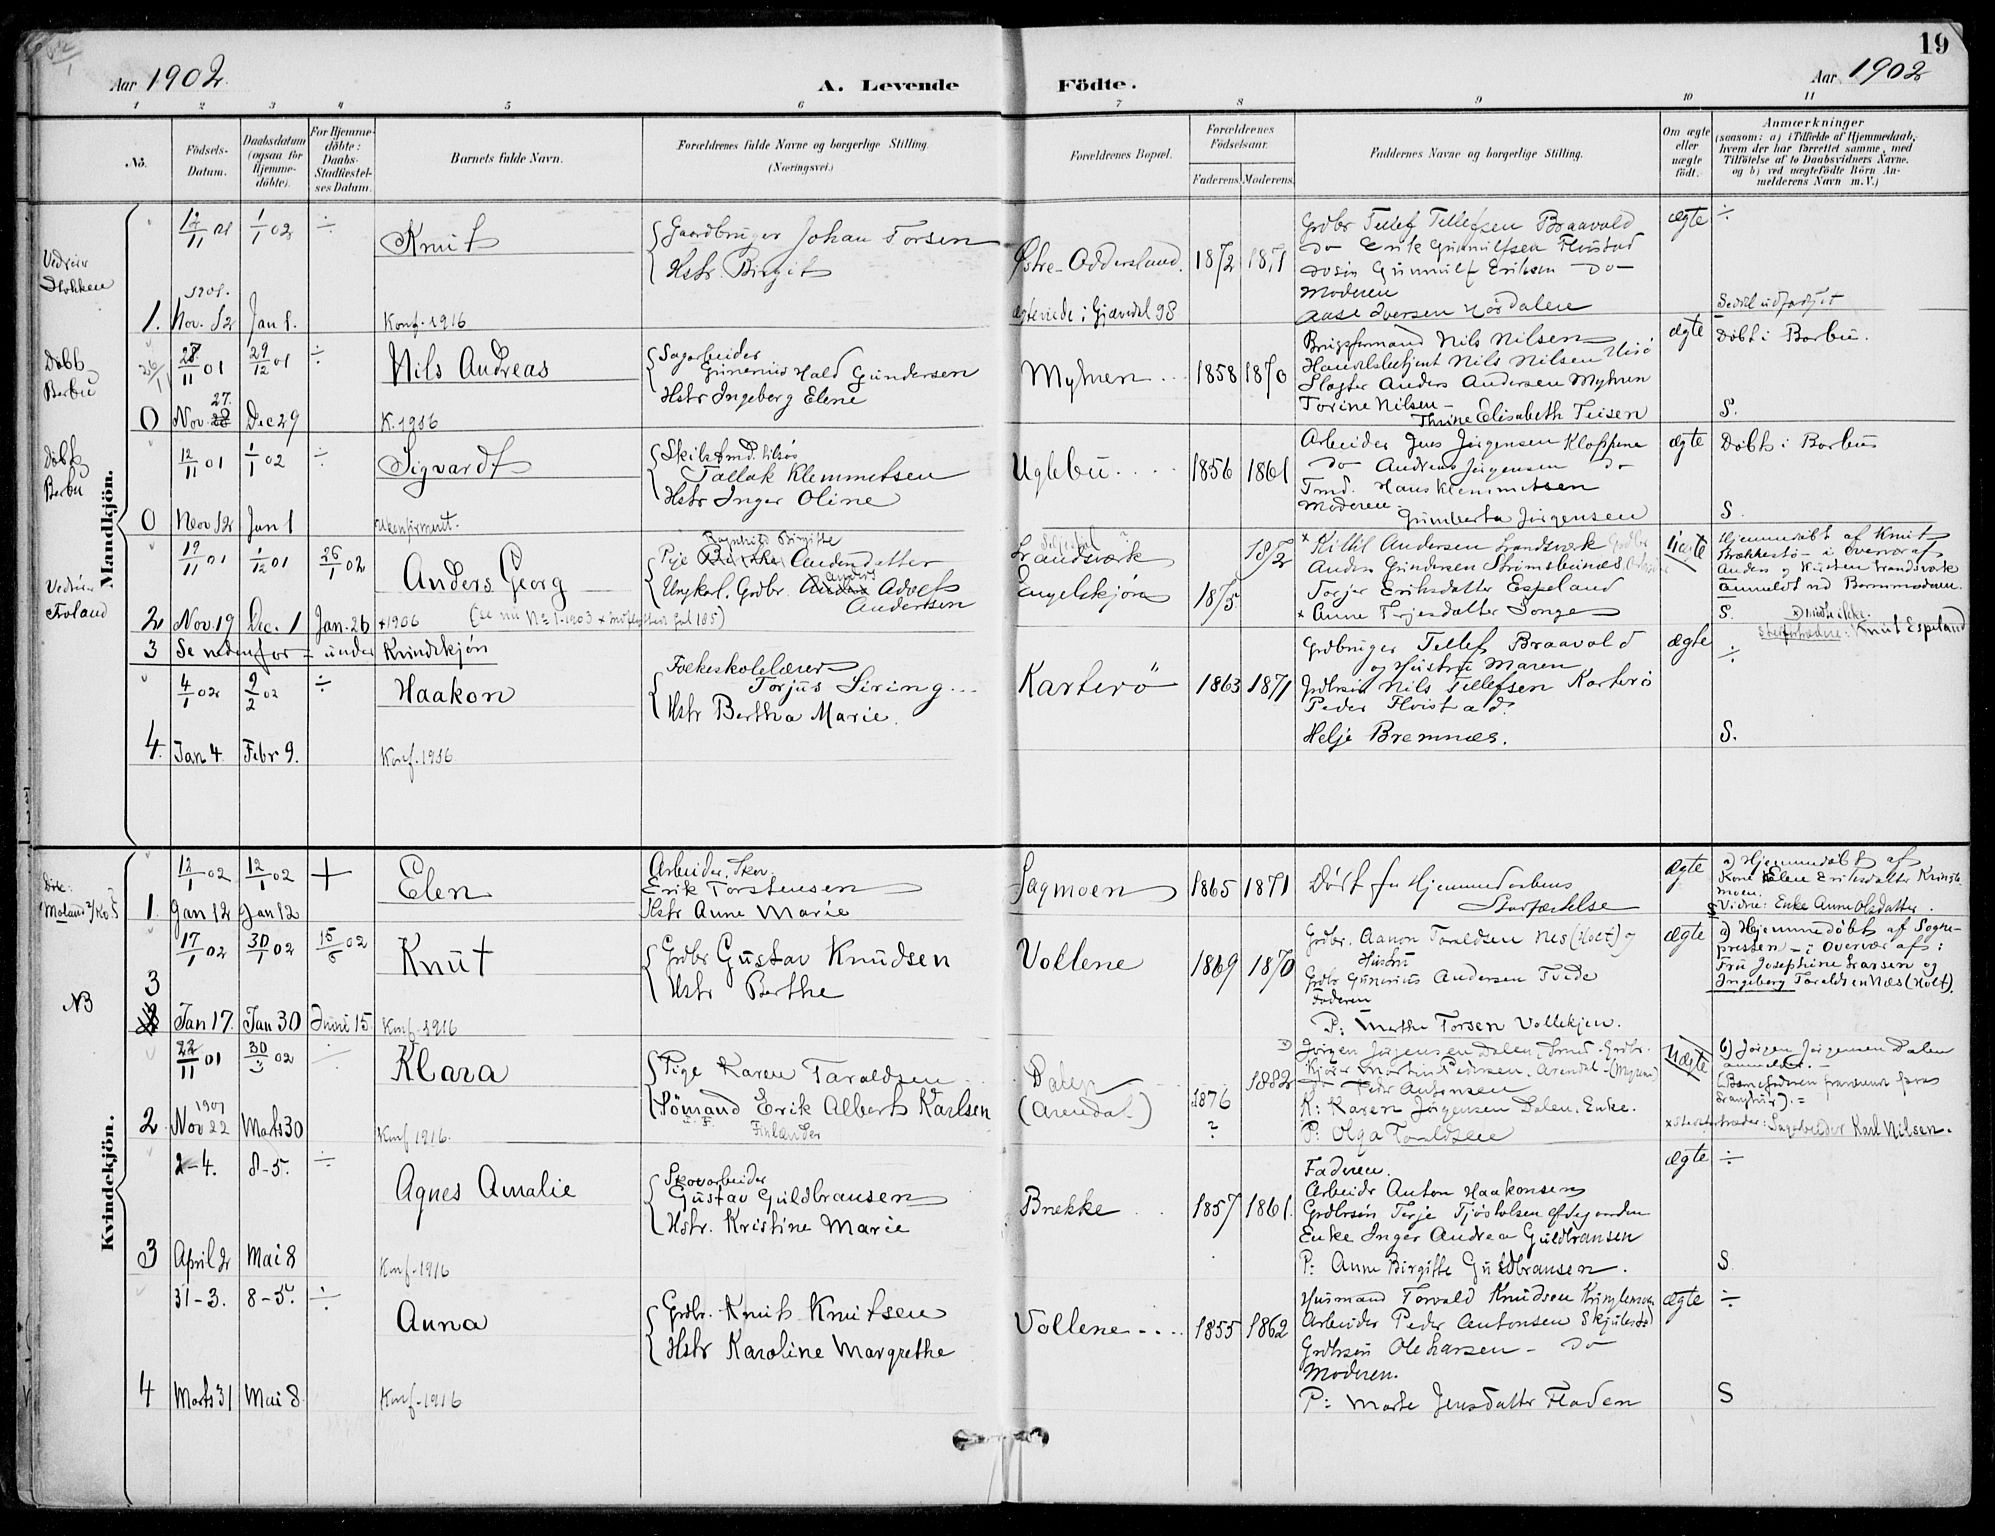 19
Aar 1902.
A. Levende Födte.
Aar 1902
1 2 3 4 5 6 7 8 9 10 11
No.
Födsels-Datum.
Daabsdatum (ogsaa for Hjemme-döbte).
For Hjemme-döbte: Daabs-Stadfæstel-ses Datum.
Barnets fulde Navn.
Forældrenes fulde Navne og borgerlige Stilling. (Næringsvei.)
Forældrenes Bopæl.
Forældrenes Födselsaar.
Faderens. Moderens.
Faddernes Navne og borgerlige Stilling.
Om ægte eller uægte födt.
Anmærkninger
(saasom: a) i Tilfælde af Hjemmedaab, hvem der har forrettet samme, med Tilföielse af to Daabsvidners Navne, og b) ved uægtefödte Börn An-melderens Navn m. V.)
Mandkjön.
12/11 01 1/1 02 ÷
Knut
Gaardbruger Johan Torsen
Hstr. Birgit
Østre-Oddersland. 1872 1871
Grdbr Tellef Tellefsen Braavold
Do Erik Gunnulfsen Fløistad
Dosøn Gunnulf Eriksen Do
Moderen
Aase Iversen
ægte ÷
1901.
1. Nov. 12 Jan 1.
Konf. 1916
ægteviede i Gjøvedal 98
Døbt Barbu
28/11 01 29/12 01 ÷
Nils Andreas
Sagarbeider
Gunerius Hald Gundersen
Hstr Ingeborg Elene
Myhren 1858 1870
Brugsformand Nils Nilsen
Handelsbetjent Nils Nilsen
Slagter Anders Andersen Myhren
Torine Nilsen
Thrine Elisabeth Teisen
ægte
Døbt i Barbu.
S.
27.
0 Nov. 28 Dec 29
K. 1916
Døbt Barbu
12/11 01 1/1 02 ÷
Sigvardt
Tallak Klemmetsen
Hstr Inger Oline
Uglebu 1856 1861
Arbeider Jens Jørgensen Kloppene
Do Andreas Jørgensen Do
Tmd. Hans Klemmetsen
Moderen
Gumberta Jørgensen
ægte
Døbt i Barbu
S.
0 Nov 12 Jan 1
Ukonfirmert.
19/11 01 1/12 01 26/1 02
Anders Georg
Ragnhild Birgitte
Pige Andersdatter
Ungkarl, Grdbr. Advet Andersen
Landsværk
Engelskjøn
1852
1875
Kittil Andersen Landsværk
Anders Gundersen Strømsbunes
Torjer Eriksdatter Espeland
Anne Terjesdatter Songe
Uægte
Hjemmedøbt af Knut
Brækkestø i overvær af
Anders og Kirsten Landsværk
anmeldt ved Barnemoderen.
S.
Knut Espeland
2 Nov. 19 Dec. 1 Jan. 26
3 Se nedenfor - under Kvindekjøn
4/1 02 9/2 02 ÷
Haakon
Folkeskolelærer
Torjus Siring
Hstr Bertha Marie.
Karterö 1863 1871
Grdbruger Tellef Braavold
og Hustru Maren
Grdbrsøn Nils Tellefsen Karterö
Peder Flöistad.
Helje Bremnæs.
ægte ÷
S.
4. Jan 4. Febr 9.
Konf. 1916
Kvindekjön.
12/1 02 12/1 02 +
Elen
Arbeider, Skov.
Erik Torstensen
Hstr Anne Marie
Sagmoen 1865 1871
Død før Hjemmedaabens
Stadfæstelse
ægte
a) Hjemmedøbt af
Kone Elen Eriksdatter Kringle-
moen.
Vidne: Enke Anne Olsdatter.
1. Jan 12 Jan 12
17/1 02 30/1 02 15/6 02
Knut
Grdbr Gustav Knudsen
Hstr Berthe
Vollene 1869 1870
Grdbr. Aanon Taraldsen Nes (Holt) og
Hustru
Grdbr Gunerius Andersen Tvede
Faderen
P: Marthe Torsen Vollekjen.
ægte
a) Hjemmedøbt af Sogne-
presten - i overvær af:
Fru Josephine Larsen og
Ingeborg Taraldsen Næs (Holt).
NB
3 Jan 17. Jan 30 Juni 15.
Konf. 1916
22/11 01 30/3 02
Klara
Pige Karen Taraldsen
Sömand Erik Albert Karlsen
Finlænder
Dalen
(Arendal)
1882
1876
?
Jörgen Jörgensen Dalen
Martin Pedersen, Arendal
Peder Antonsen
K: Karen Jørgensen Dalen. Enke.
P: Olga Taraldsen
Uægte
b) Jørgen Jørgensen Dalen
anmelder.
Sagarbeider Karl Nilsen.
1901
2 Nov 22 Marts 30
Konf 1916.
2-4. 8-5. ÷
Agnes Amalie
Skovarbeider
Gustav Guldbransen
Hstr. Kristine Marie
Brekke 1857 1861.
Faderen.
Arbeidr Anton Haakonsen
Grdbrsön Terje Tjöstolsen
Enke Inger Andrea Guldbransen
P: Anne Birgitte Guldbransen.
ægte ÷
S.
3 April 2 Mai 8
Konf. 1916
31-3. 8-5. ÷
Anna
Grdbr. Knut Knutsen
Hstr Karoline Margrethe
Vollene 1855 1862
Husmand Torvald Knudsen
Arbeider Peder Antonsen
Grdbrsön Ole Larsen - Do
Moderen.
P: Marte Jensdatter Fladen
ægte ÷
S
4 Marts 31 Mai 8
Konf. 1916